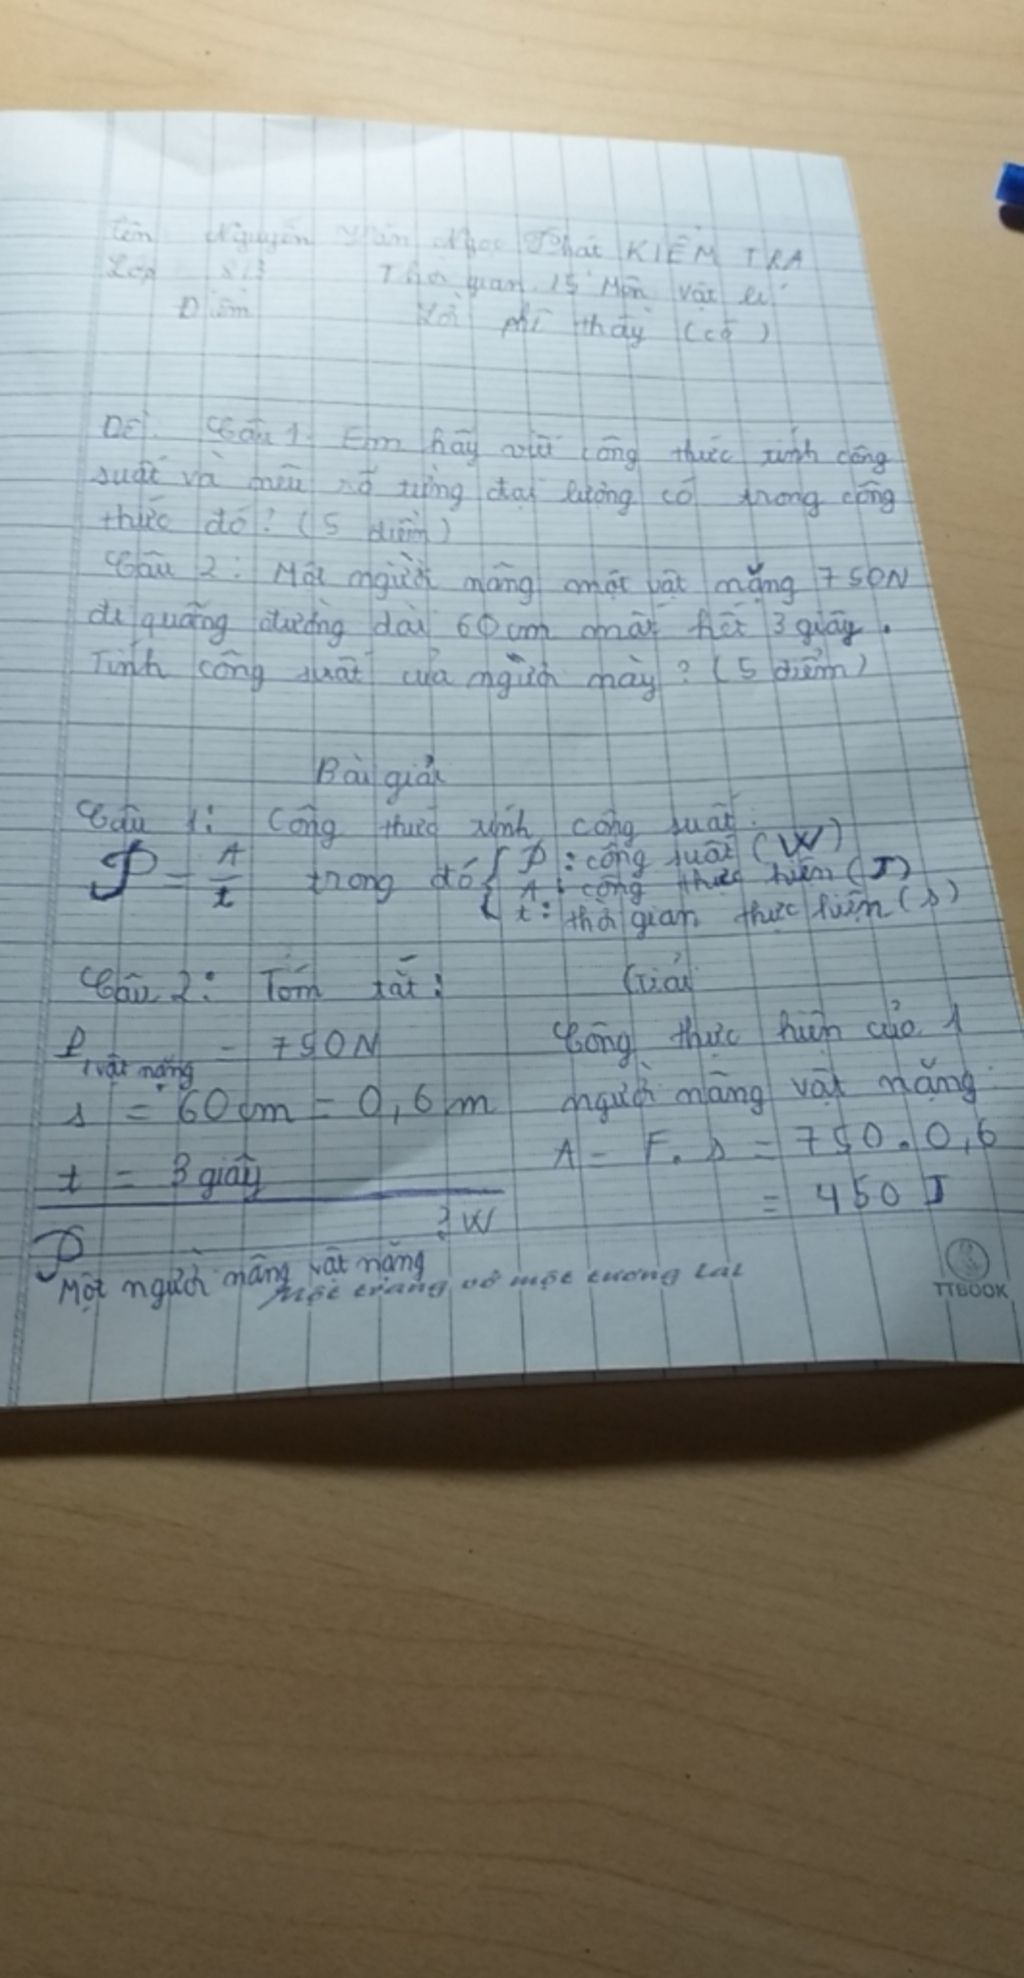 Tên Nguyễn Văn Ngọc Phát KIỂM TRA
Lớp Thời gian 15' Môn vật lí
Điểm Lời phê thầy (cô)
Đề: Câu 1: Em hãy viết công thức tính công
suất và nêu rõ từng đại lượng có trong công
thức đó? (5 điểm)
Câu 2: Một người mang một vật nặng 750N
đi quãng đường dài 60cm mất hết 3 giây.
Tính công suất của người này? (5 điểm)
Bài giải
Câu 1: Công thức tính công suất:
P = A/t trong đó { P: công suất (W)
A: công thực hiện (J)
t: thời gian thực hiện (s)
Câu 2: Tóm tắt: Giải
P vật nặng = 750N Công thực hiện của 1
s = 60cm = 0,6m người mang vật nặng
t = 3 giây A = F.s = 750.0,6
= 450 J
P ? W
Một người mang vật nặng
Một trang vở một tương lai
TTBOOK